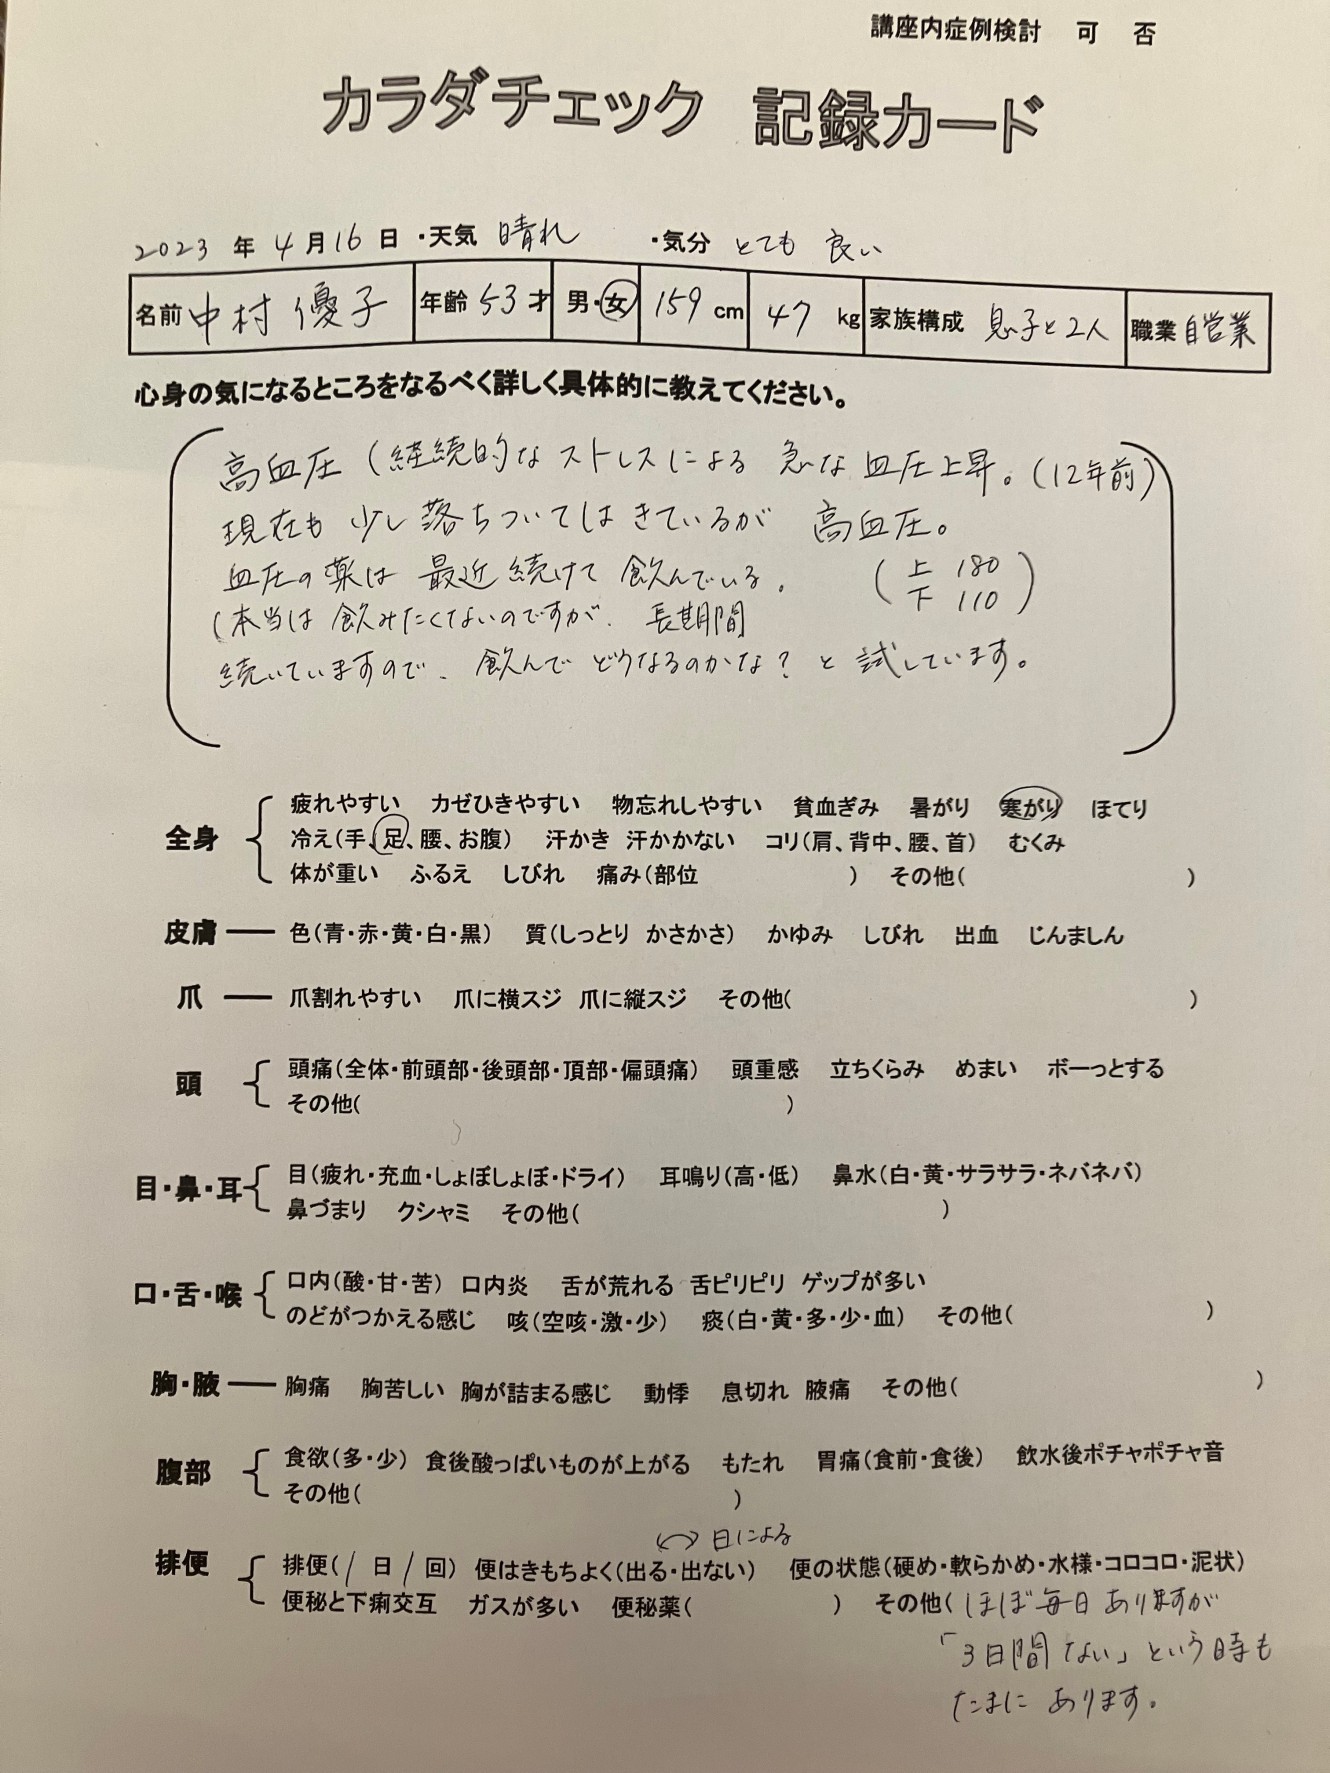 講座内症例検討 可 否
カラダチェック 記録カード
2023 年 4 月 16 日 ・天気 晴れ ・気分 とても 良い
名前 中村 優子 年齢 53 才 男・女 159 cm 47 kg 家族構成 息子と2人 職業 自営業
心身の気になるところをなるべく詳しく具体的に教えてください。
高血圧 (経続的な ストレスによる 急な 血圧上昇。(12年前)
現在も 少し 落ちついてはきているが 高血圧。
血圧の薬は 最近 続けて 飲んでいる。 (上 180
下 110)
(本当は 飲みたくないのですが、 長期間
続いていますので、 飲んで どうなるのかな? と 試しています。
全身 疲れやすい カゼひきやすい 物忘れしやすい 貧血ぎみ 暑がり 寒がり ほてり
冷え(手、足、腰、お腹) 汗かき 汗かかない コリ(肩、背中、腰、首) むくみ
体が重い ふるえ しびれ 痛み(部位 ) その他( )
皮膚 色(青・赤・黄・白・黒) 質(しっとり かさかさ) かゆみ しびれ 出血 じんましん
爪 爪割れやすい 爪に横スジ 爪に縦スジ その他( )
頭 頭痛(全体・前頭部・後頭部・頂部・偏頭痛) 頭重感 立ちくらみ めまい ボーっとする
その他( )
目・鼻・耳 目(疲れ・充血・しょぼしょぼ・ドライ) 耳鳴り(高・低) 鼻水(白・黄・サラサラ・ネバネバ)
鼻づまり クシャミ その他( )
口・舌・喉 口内(酸・甘・苦) 口内炎 舌が荒れる 舌ピリピリ ゲップが多い
のどがつかえる感じ 咳(空咳・激・少) 痰(白・黄・多・少・血) その他( )
胸・腋 胸痛 胸苦しい 胸が詰まる感じ 動悸 息切れ 腋痛 その他( )
腹部 食欲(多・少) 食後酸っぱいものが上がる もたれ 胃痛(食前・食後) 飲水後ポチャポチャ音
その他( )
日による
排便 排便(1 日 1 回) 便はきもちよく(出る・出ない) 便の状態(硬め・軟らかめ・水様・コロコロ・泥状)
便秘と下痢交互 ガスが多い 便秘薬( ) その他(ほぼ毎日 ありますが
「3日間 ない」 という時も
たまに あります。